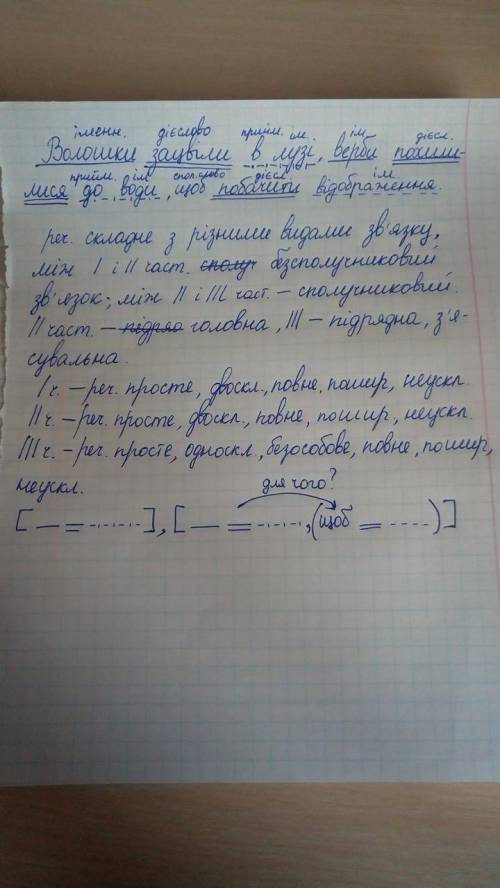 іменн. дієслово прийм. ім. ім. дієсл.
Волошки зацвіли в лузі, верби похили-
прийм. ім. спол. слово дієсл. ім.
лися до води, щоб побачити відображення.
реч. складне з різними видами зв'язку,
між І і ІІ част. сполуч безсполучниковий
зв'язок; між ІІ і ІІІ част. – сполучниковий.
ІІ част. – підряд головна, ІІІ – підрядна, з'я-
сувальна.
І ч. – реч. просте, двоскл., повне, пошир, неускл.
ІІ ч. – реч. просте, двоскл., повне, пошир., неускл.
ІІІ ч. – реч. просте, односкл., безособове, повне, пошир,
неускл.
для чого?
[ ], [ , (щоб )]